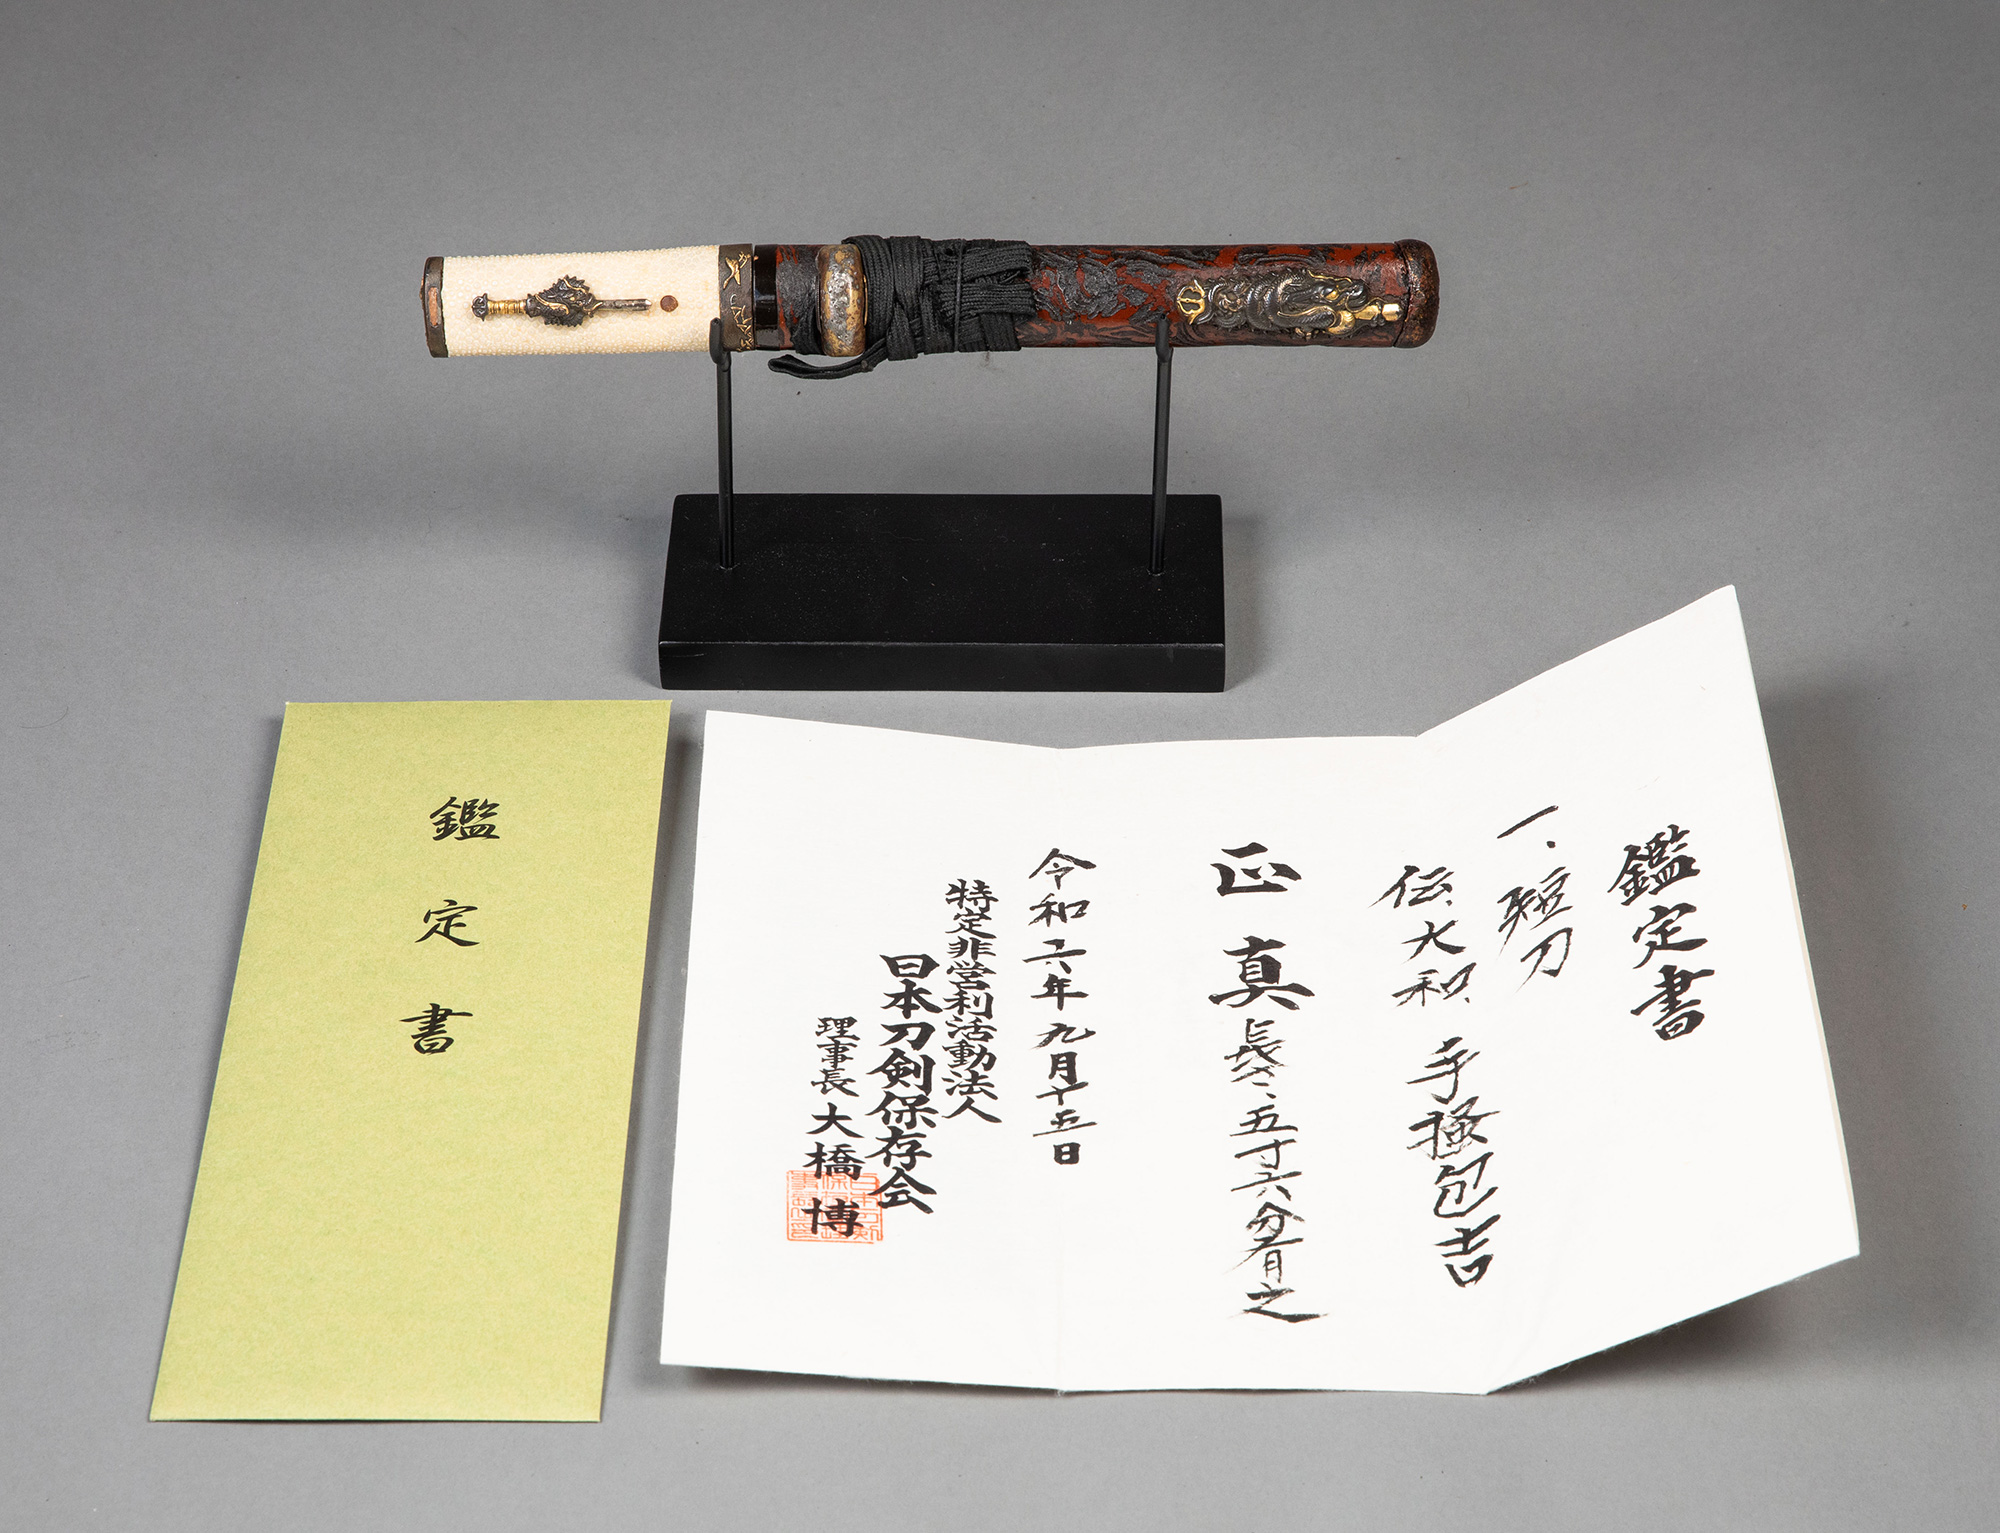 鑑定書
鑑定書
一、短刀
伝、大和、手掻包吉
正真
長サ、五寸六分有之
令和六年九月十五日
特定非営利活動法人
日本刀剣保存会
理事長 大橋 博